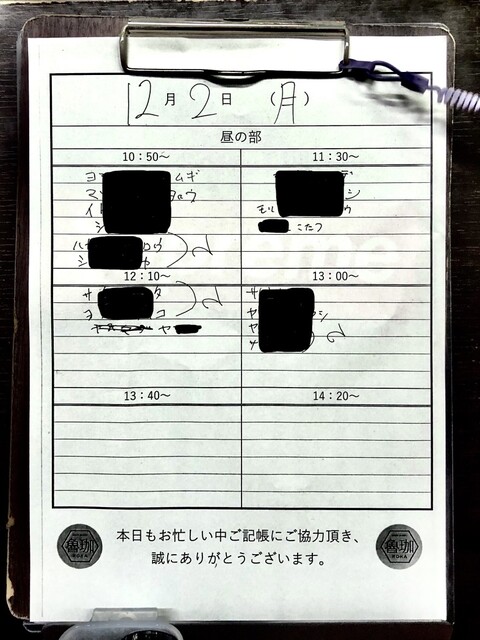 12月2日（月）
昼の部
10：50～
11：30～
ヨ ムギ
マ ロウ
イ
シ
シ
モリ ウ
こたつ
ハヤ ロウ
シ ヤ
2
12：10～
13：00～
サ タ
ヨ コ
2
ヤ
サ
ヤ シ
ヤ
2
13：40～
14：20～
本日もお忙しい中ご記帳にご協力頂き、
誠にありがとうございます。
魯珈
ROKA
魯珈
ROKA